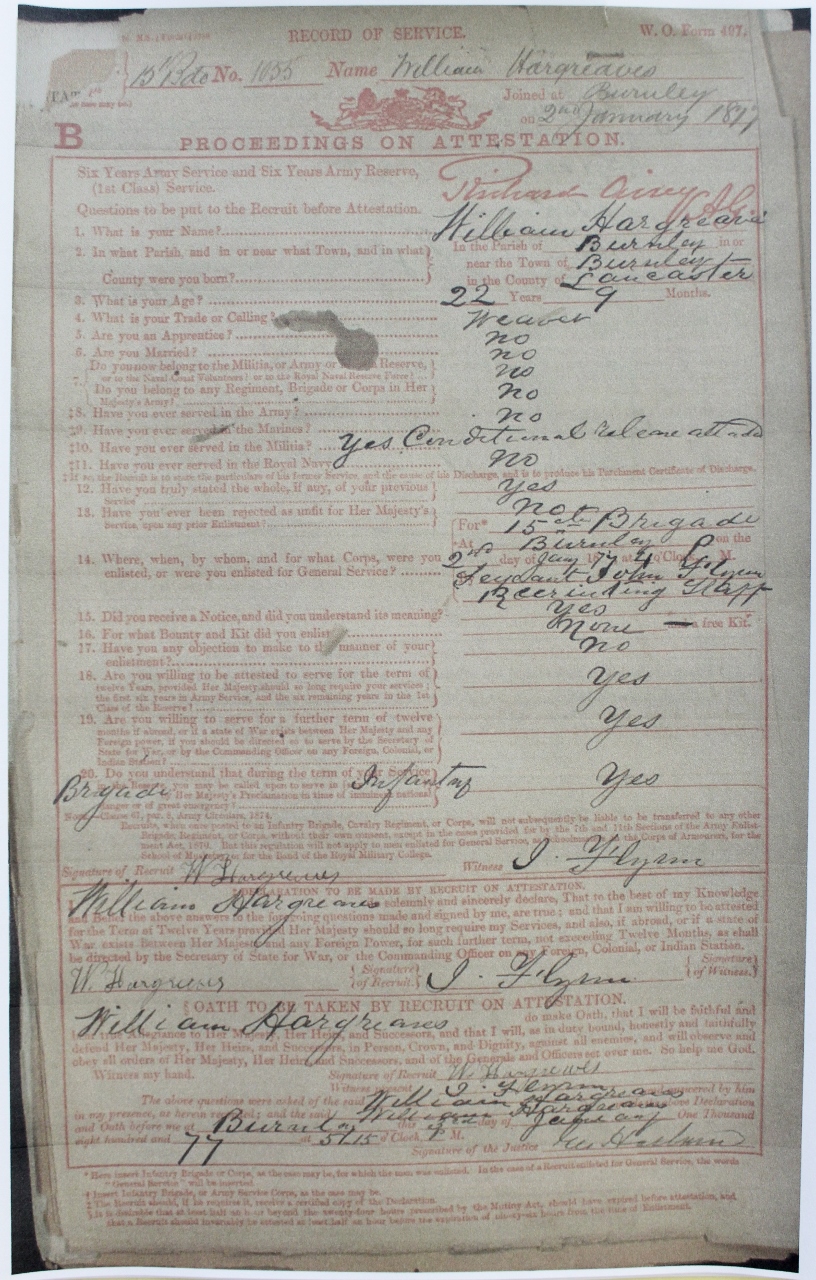 RECORD OF SERVICE.
W. O. Form 497.
No. 1055 Name William Hargreaves
Joined at Burnley
on 2nd January 1877
B
PROCEEDINGS ON ATTESTATION.
Six Years Army Service and Six Years Army Reserve,
(1st Class) Service.
Richard Airey AG
Questions to be put to the Recruit before Attestation.
1. What is your Name? William Hargreaves
2. In what Parish, and in or near what Town, and in what County were you born? In the Parish of Burnley in or
near the Town of Burnley
in the County of Lancaster
3. What is your Age? 22 Years 9 Months.
4. What is your Trade or Calling? Weaver
5. Are you an Apprentice? no
6. Are you Married? no
Do you now belong to the Militia, or Army or Reserve, no
or to the Naval Coast Volunteers? or to the Royal Naval Reserve Force?
Do you belong to any Regiment, Brigade or Corps in Her no
Majesty's Army?
‡8. Have you ever served in the Army? no
‡9. Have you ever served in the Marines?
‡10. Have you ever served in the Militia? Yes Conditional release
‡11. Have you ever served in the Royal Navy no
‡If so, the Recruit is to state the particulars of his former Service, and the cause of his Discharge, and is to produce his Parchment Certificate of Discharge.
12. Have you truly stated the whole, if any, of your previous Yes
Service
13. Have you ever been rejected as unfit for Her Majesty's not
Service, upon any prior Enlistment?
For* 15th Brigade
*At Burnley on the
14. Where, when, by whom, and for what Corps, were you 2nd day of Jany 1877 at 4 o'Clock P M.
enlisted, or were you enlisted for General Service? John Flynn
Recruiting Staff
15. Did you receive a Notice, and did you understand its meaning? Yes
16. For what Bounty and Kit did you enlist None a free Kit.
17. Have you any objection to make to the manner of your no
enlistment?
18. Are you willing to be attested to serve for the term of
twelve Years, provided Her Majesty should so long require your services; Yes
the first six years in Army Service, and the six remaining years in the 1st
Class of the Reserve?
19. Are you willing to serve for a further term of twelve
months if abroad, or if a state of War exists between Her Majesty and any Yes
Foreign power, if you should be directed so to serve by the Secretary of
State for War, or by the Commanding Officer on any Foreign, Colonial, or
Indian Station?
20. Do you understand that during the term of your Service
Brigade you may be called upon to serve in Infantry Yes
Her Majesty's Proclamation in time of imminent national
danger or of great emergency?
Recruits, when once posted to an Infantry Brigade, Cavalry Regiment, or Corps, will not subsequently be liable to be transferred to any other
Brigade, Regiment, or Corps, without their own consent, except in the cases provided for by the 7th and 11th Sections of the Army Enlist-
ment Act, 1870. But this regulation will not apply to men enlisted for General Service, as Schoolmasters, for the Corps of Armourers, for the
School of Musketry, or for the Band of the Royal Military College.
Signature of Recruit W Hargreaves Witness J. Flynn
DECLARATION TO BE MADE BY RECRUIT ON ATTESTATION.
William Hargreaves solemnly and sincerely declare, That to the best of my Knowledge
and Belief the above answers to the foregoing questions made and signed by me, are true; and that I am willing to be attested
for the Term of Twelve Years provided Her Majesty should so long require my Services, and also, if abroad, or if a state of
War exists Between Her Majesty and any Foreign Power, for such further term, not exceeding Twelve Months, as shall
be directed by the Secretary of State for War, or the Commanding Officer on any Foreign, Colonial, or Indian Station.
W. Hargreaves Signature of Recruit. J. Flynn Signature of Witness.
OATH TO BE TAKEN BY RECRUIT ON ATTESTATION.
William Hargreaves do make Oath, that I will be faithful and
bear true Allegiance to Her Majesty, Her Heirs, and Successors, and that I will, as in duty bound, honestly and faithfully
defend Her Majesty, Her Heirs, and Successors, in Person, Crown, and Dignity, against all enemies, and will observe and
obey all orders of Her Majesty, Her Heirs, and Successors, and of the Generals and Officers set over me. So help me God.
Witness my hand. Signature of Recruit W. Hargreaves
Witness present J. Flynn
The above questions were asked of the said William Hargreaves and answered by him
in my presence, as herein recorded; and the said William Hargreaves above Declaration
and Oath before me at Burnley this 3rd day of January One Thousand
eight hundred and 77 at 5/15 o'Clock P M.
Signature of the Justice
* Here insert Infantry Brigade or Corps, as the case may be, for which the man was enlisted. In the case of a Recruit enlisted for General Service, the words
"General Service" will be inserted
† Insert Infantry Brigade, or Army Service Corps, as the case may be.
‡ The Recruit should, if he requires it, receive a certified copy of the Declaration.